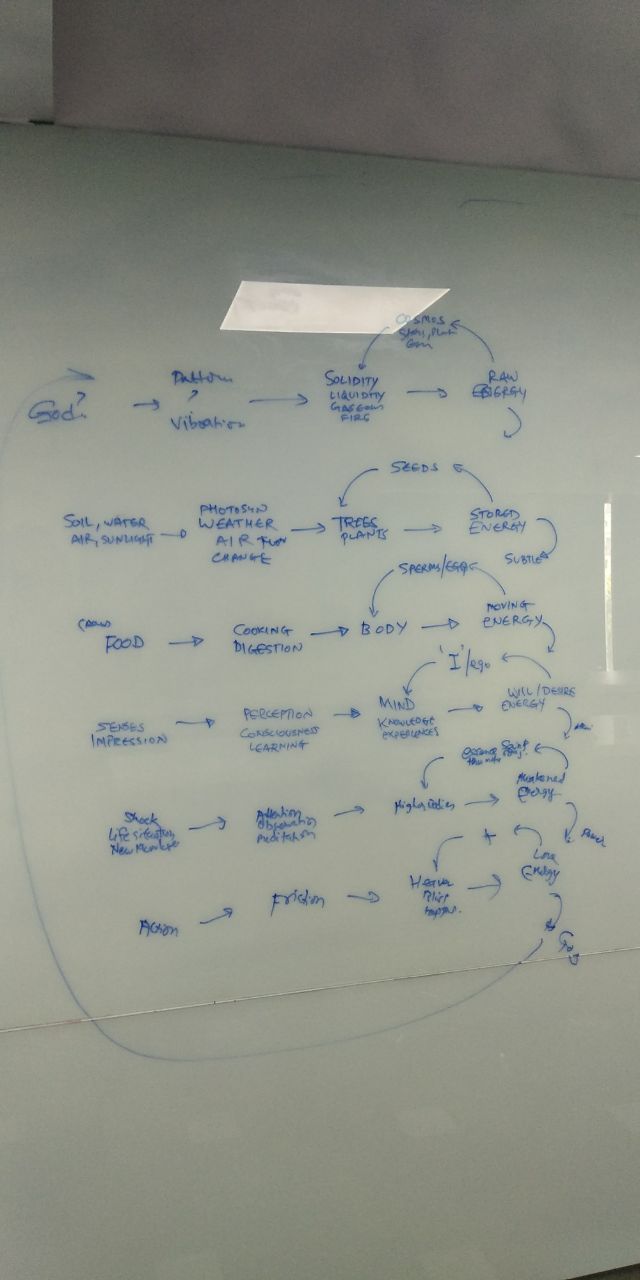 COSMOS
God?
Pattern
Vibration
SOLIDITY
LIQUIDITY
GASEOUS
FIRE
RAW
ENERGY
SEEDS
SOIL, WATER
AIR, SUNLIGHT
PHOTOSYN
WEATHER
AIR
CHANGE
TREES
PLANTS
STORED
ENERGY
SUBTLE
SPERMS/EGG
FOOD
COOKING
DIGESTION
BODY
MOVING
ENERGY
'I'/ego
SENSES
IMPRESSION
PERCEPTION
CONSCIOUSNESS
LEARNING
MIND
KNOWLEDGE
EXPERIENCES
WILL/DESIRE
ENERGY
essence
Shock
Life situation
Attention
Observation
Meditation
Higher Bodies
Awakened
Energy
+
Action
Friction
Love
Energy
God